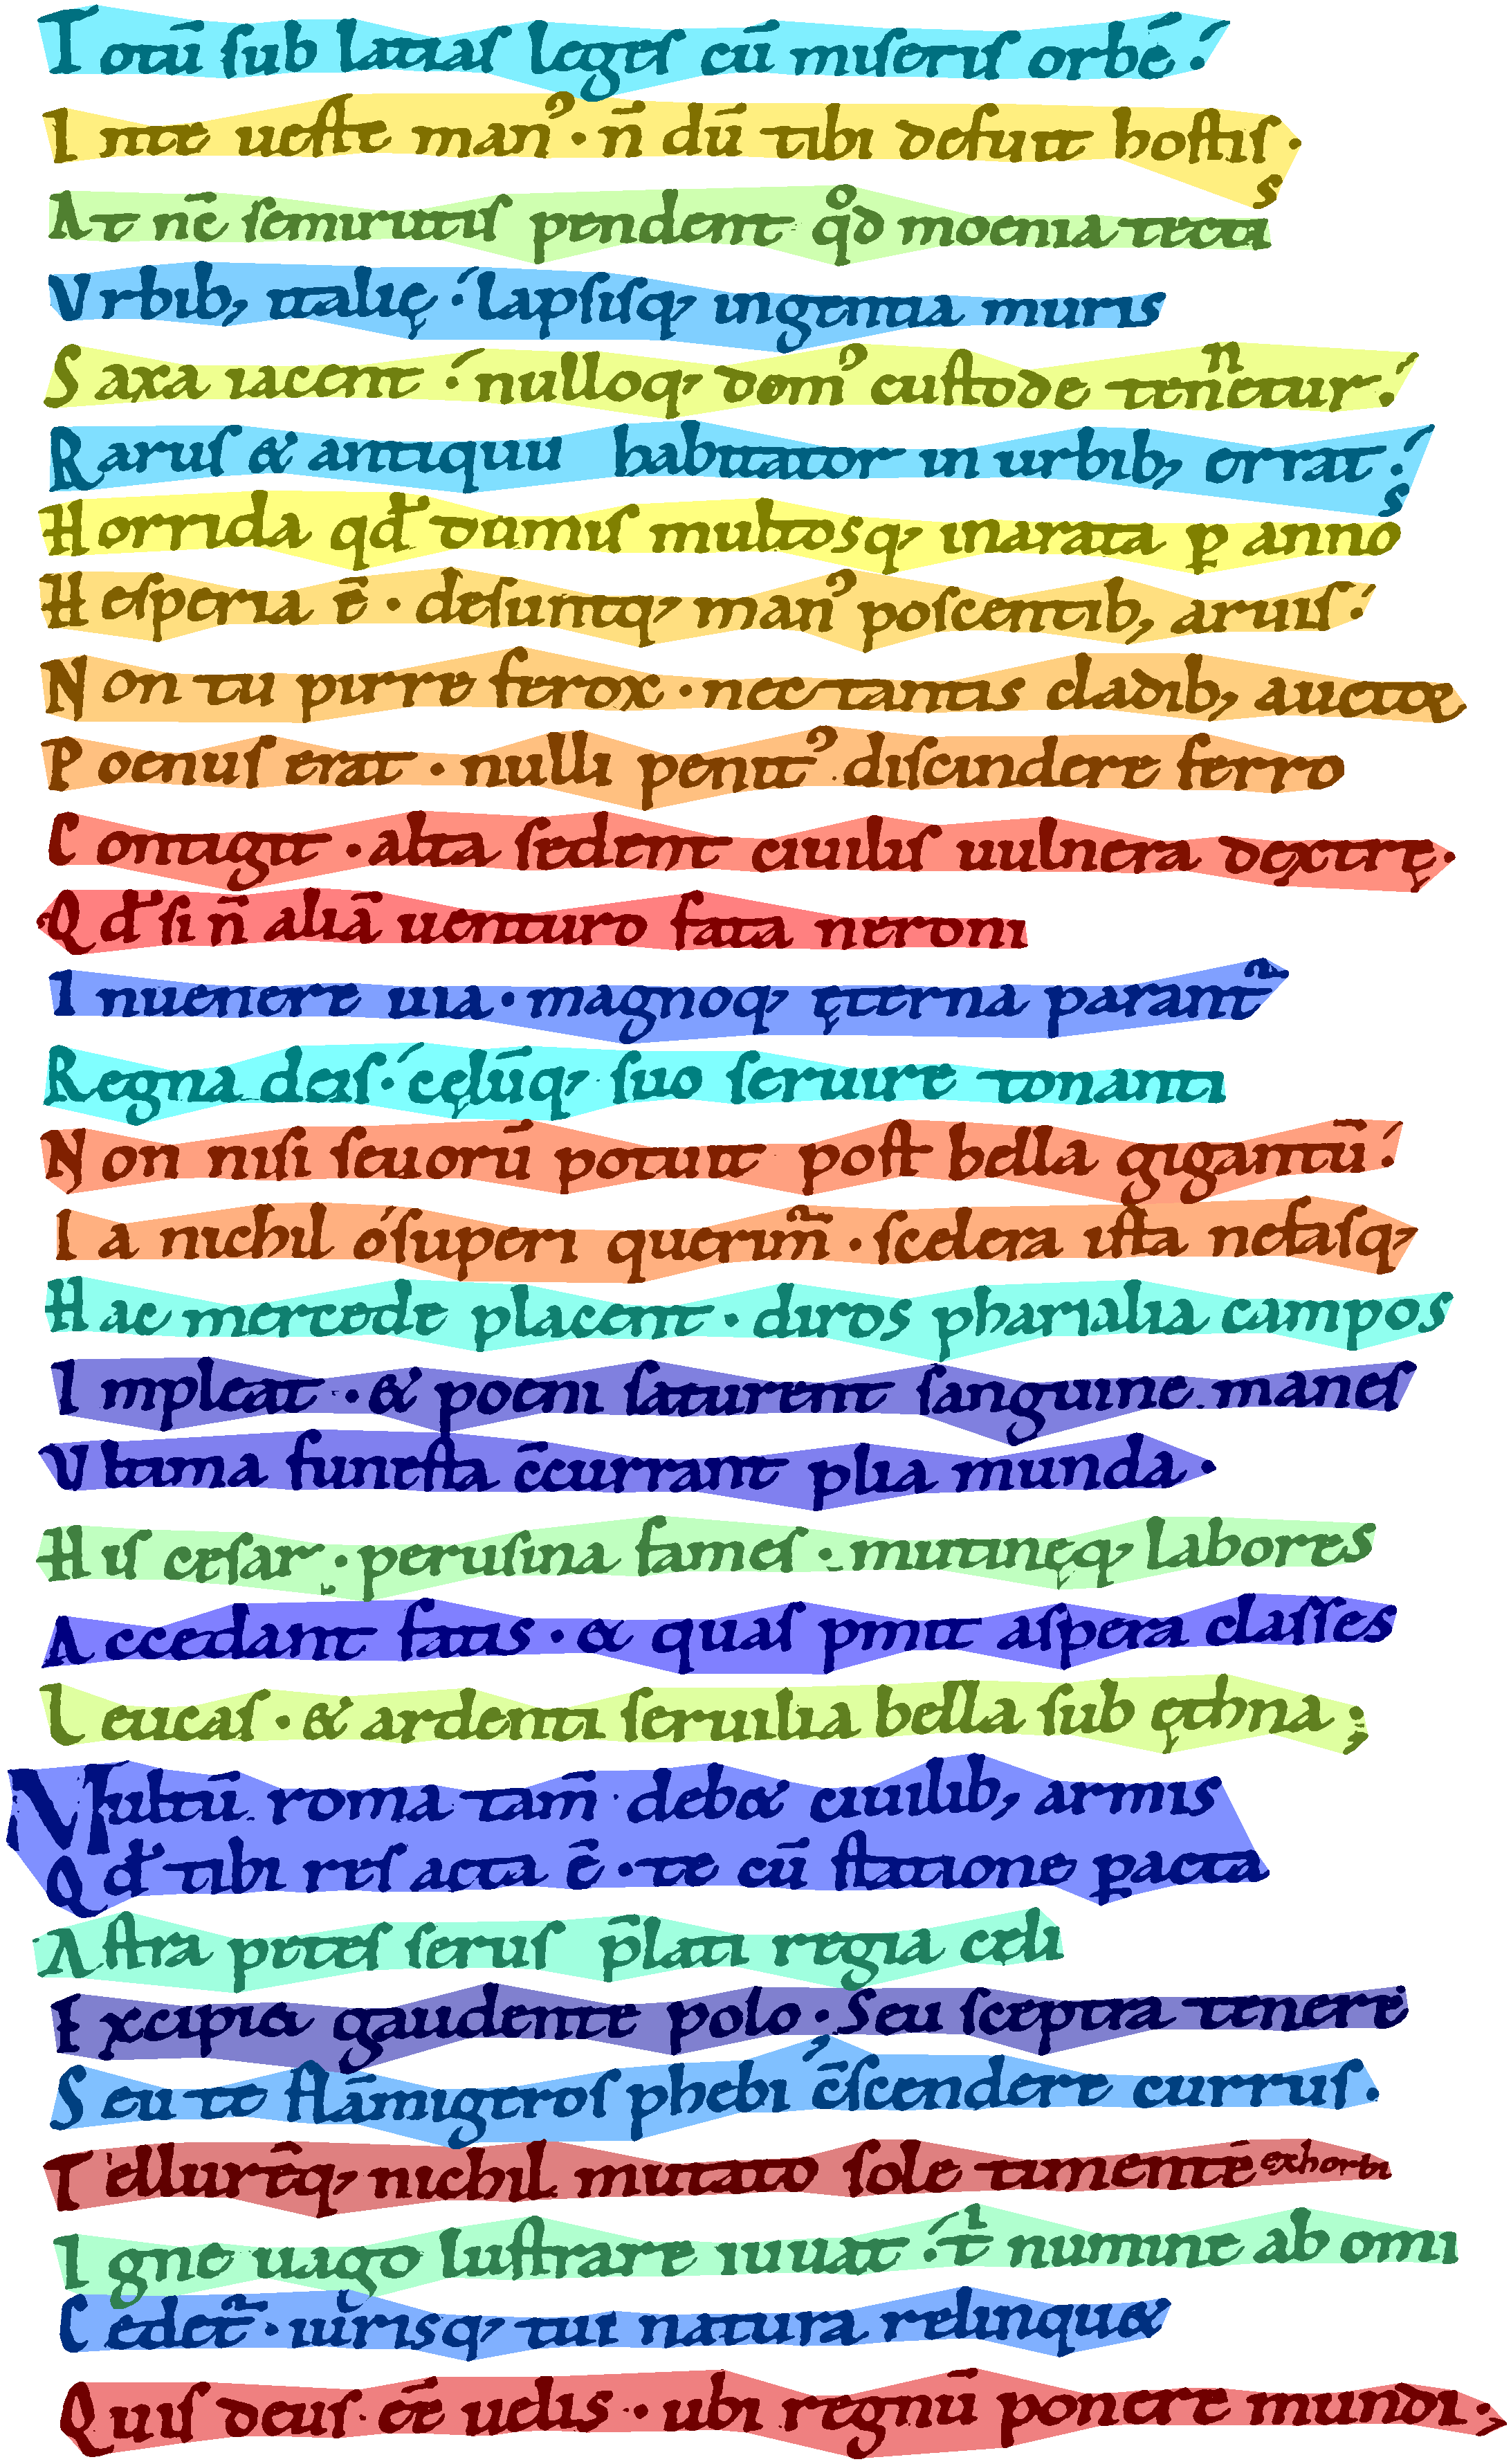 Totū sub latias leges cū miseris orbē:
Inte ueste man᾽· n̄ dū tibi defuit hostis·
At nc̄ semirutis pendent qͦd moenia tectis
Vrbib; italię: lapsisq; ingentia muris
Saxa iacent: nulloq; dom᾽ custode tenn̄etur:
Rarus & antiquu habitator in urbib; errat:
Horrida qđ dumis multosq; inarata ꝑ annos
Hesperia ē· desuntq; man᾽ poscentib; aruis:
Non tu pirre ferox· nec tantis cladib; auctor
Poenus erat· nulli penit᾽ discindere ferro
Contigit· alta sedent ciuilis uulnera dextrę·
Qđ si n̄ aliā uenturo fata neroni
Inuenere uia· magnoq; ęterna parant᷑
Regna deis: cęlūq; suo seruire tonanti
Non nisi seuorū potuit post bella gigantū:
Ia nichil ó superi querim̃· scelera ista nefasq;
Hac mercede placent· diros pharsalia campos
Impleat· & poeni saturent sanguine manes
Vltima funesta c̄currant plia munda·
His cesar· perusina fames· mutinęq; labores
Accedant fatis· & quas pmit aspera classes
Leucas· & ardenti seruilia bella sub ęthna;
Multū roma tam̄ deb& ciuilib; armis
Qđ tibi res acta ē· te cū statione ꝑacta
Astra petes serus p̄lati regia cęli
Excipi& gaudente polo· Seu sceptra tenere
Seu te flāmigeros phebi c̄scendere currus·
Tellurēq; nichil mutato sole timentē exhorti
Igne uago lustrare iuuat: t̵ numine ab omi
Cedet᷑· iurisq; tui natura relinqu&
Quis deus ēē uelis· ubi regnū ponere mundi;